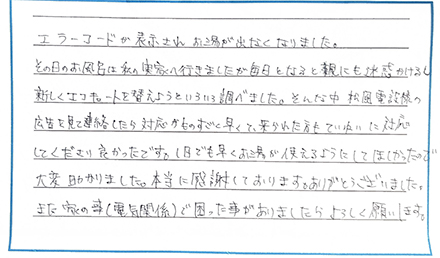 エラーコードが表示されお湯が出なくなりました。
その日のお風呂は私の実家へ行きましたが毎日となると親にも迷惑かけるし
新しくエコキュートを替えようといろいろ調べました。そんな中 松風電設様の
広告を見て連絡したら対応がものすごく早くて、来られた方もていねいに対応
してくださり良かったです。1日でも早くお湯が使えるようにしてほしかったので
大変助かりました。本当に感謝しております。ありがとうございました。
また家の事(電気関係)で困った事がありましたらよろしく願いします。